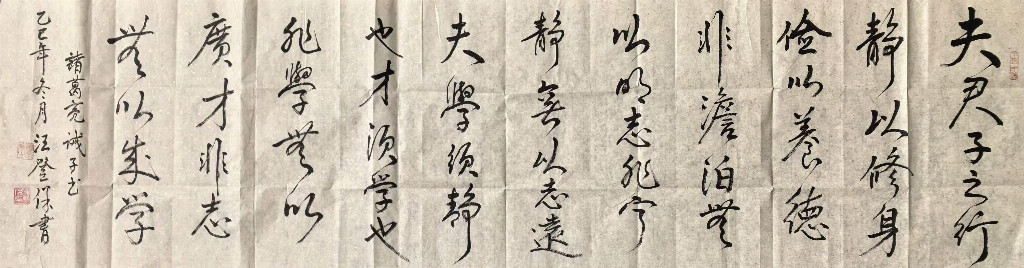 夫君子之行
静以修身
俭以養德
非澹泊無
以明志非宁
静無以志遠
夫學须静
也才须学也
非學無以
廣才非志
無以成学
諸葛亮诫子书
乙巳年冬月汪登保書